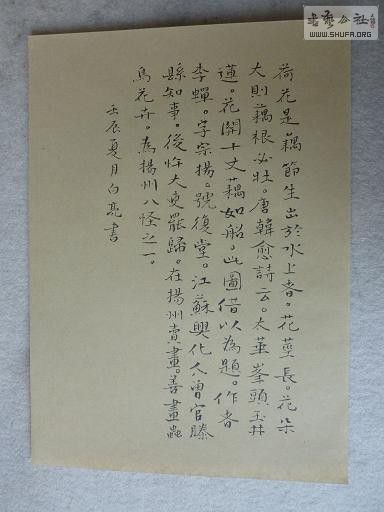 荷花是藕節生出於水上者。花莖長。花朵
大則藕根必壯。唐韓愈詩云。太華峯頭玉井
蓮。花開十丈藕如船。此圖借以為題。作者
李蟬。字宗揚。號復堂。江蘇興化人曾官滕
縣知事。後忤大吏罷歸。在揚州賣畫。善畫蟲
鳥花卉。為揚州八怪之一。
壬辰夏月白亮書
书艺公社
WWW.SHUFA.ORG